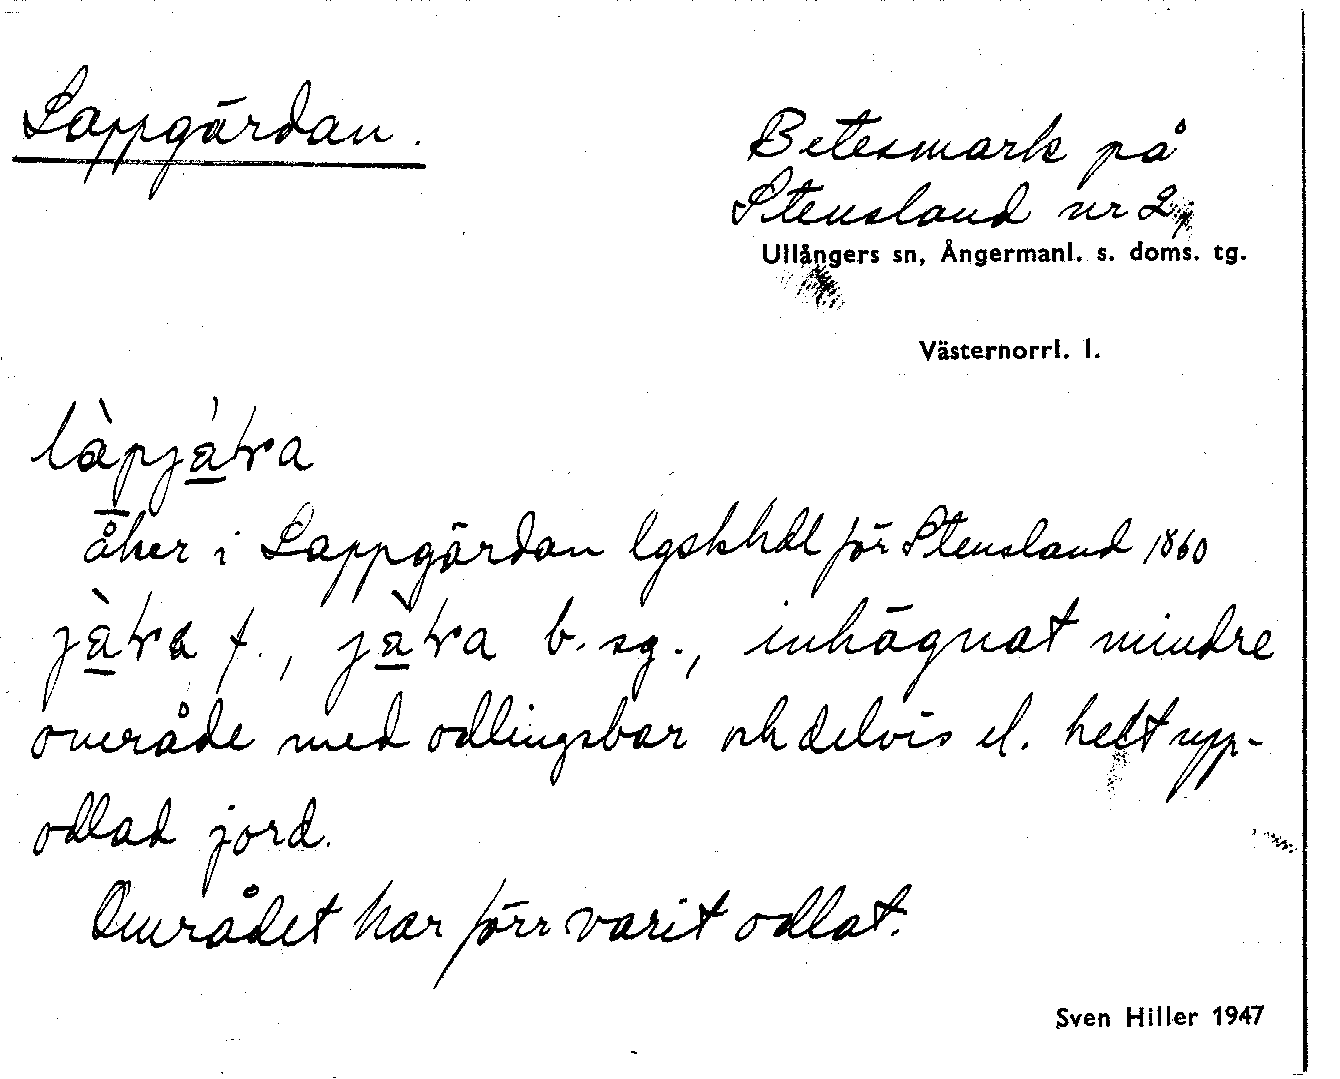 Lappgärdan.
Betesmark på
Stensland nr 2,
Ullångers sn, Ångermanl. s. doms. tg.
Västernorrl. l.
åker i Lappgärdan lgskhdl för Stensland 1860
f., b. sg., inhägnat mindre
område med odlingsbar och delvis el. helt upp-
odlad jord.
Området har förr varit odlat.
Sven Hiller 1947